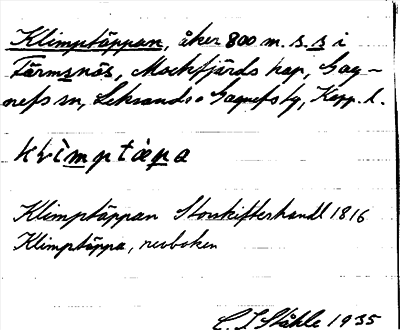 Klimptäppan, åker 800 m. s. s i
Färmsnäs, Mockfjärds kap, Gag-
nefs sn, Leksands o Gagnefs tg, Kopp. l.
klìmptàpa
Klimptäppan Storskifteshandl 1816
Klimptäppa, revboken
C. I. Ståhle 1935